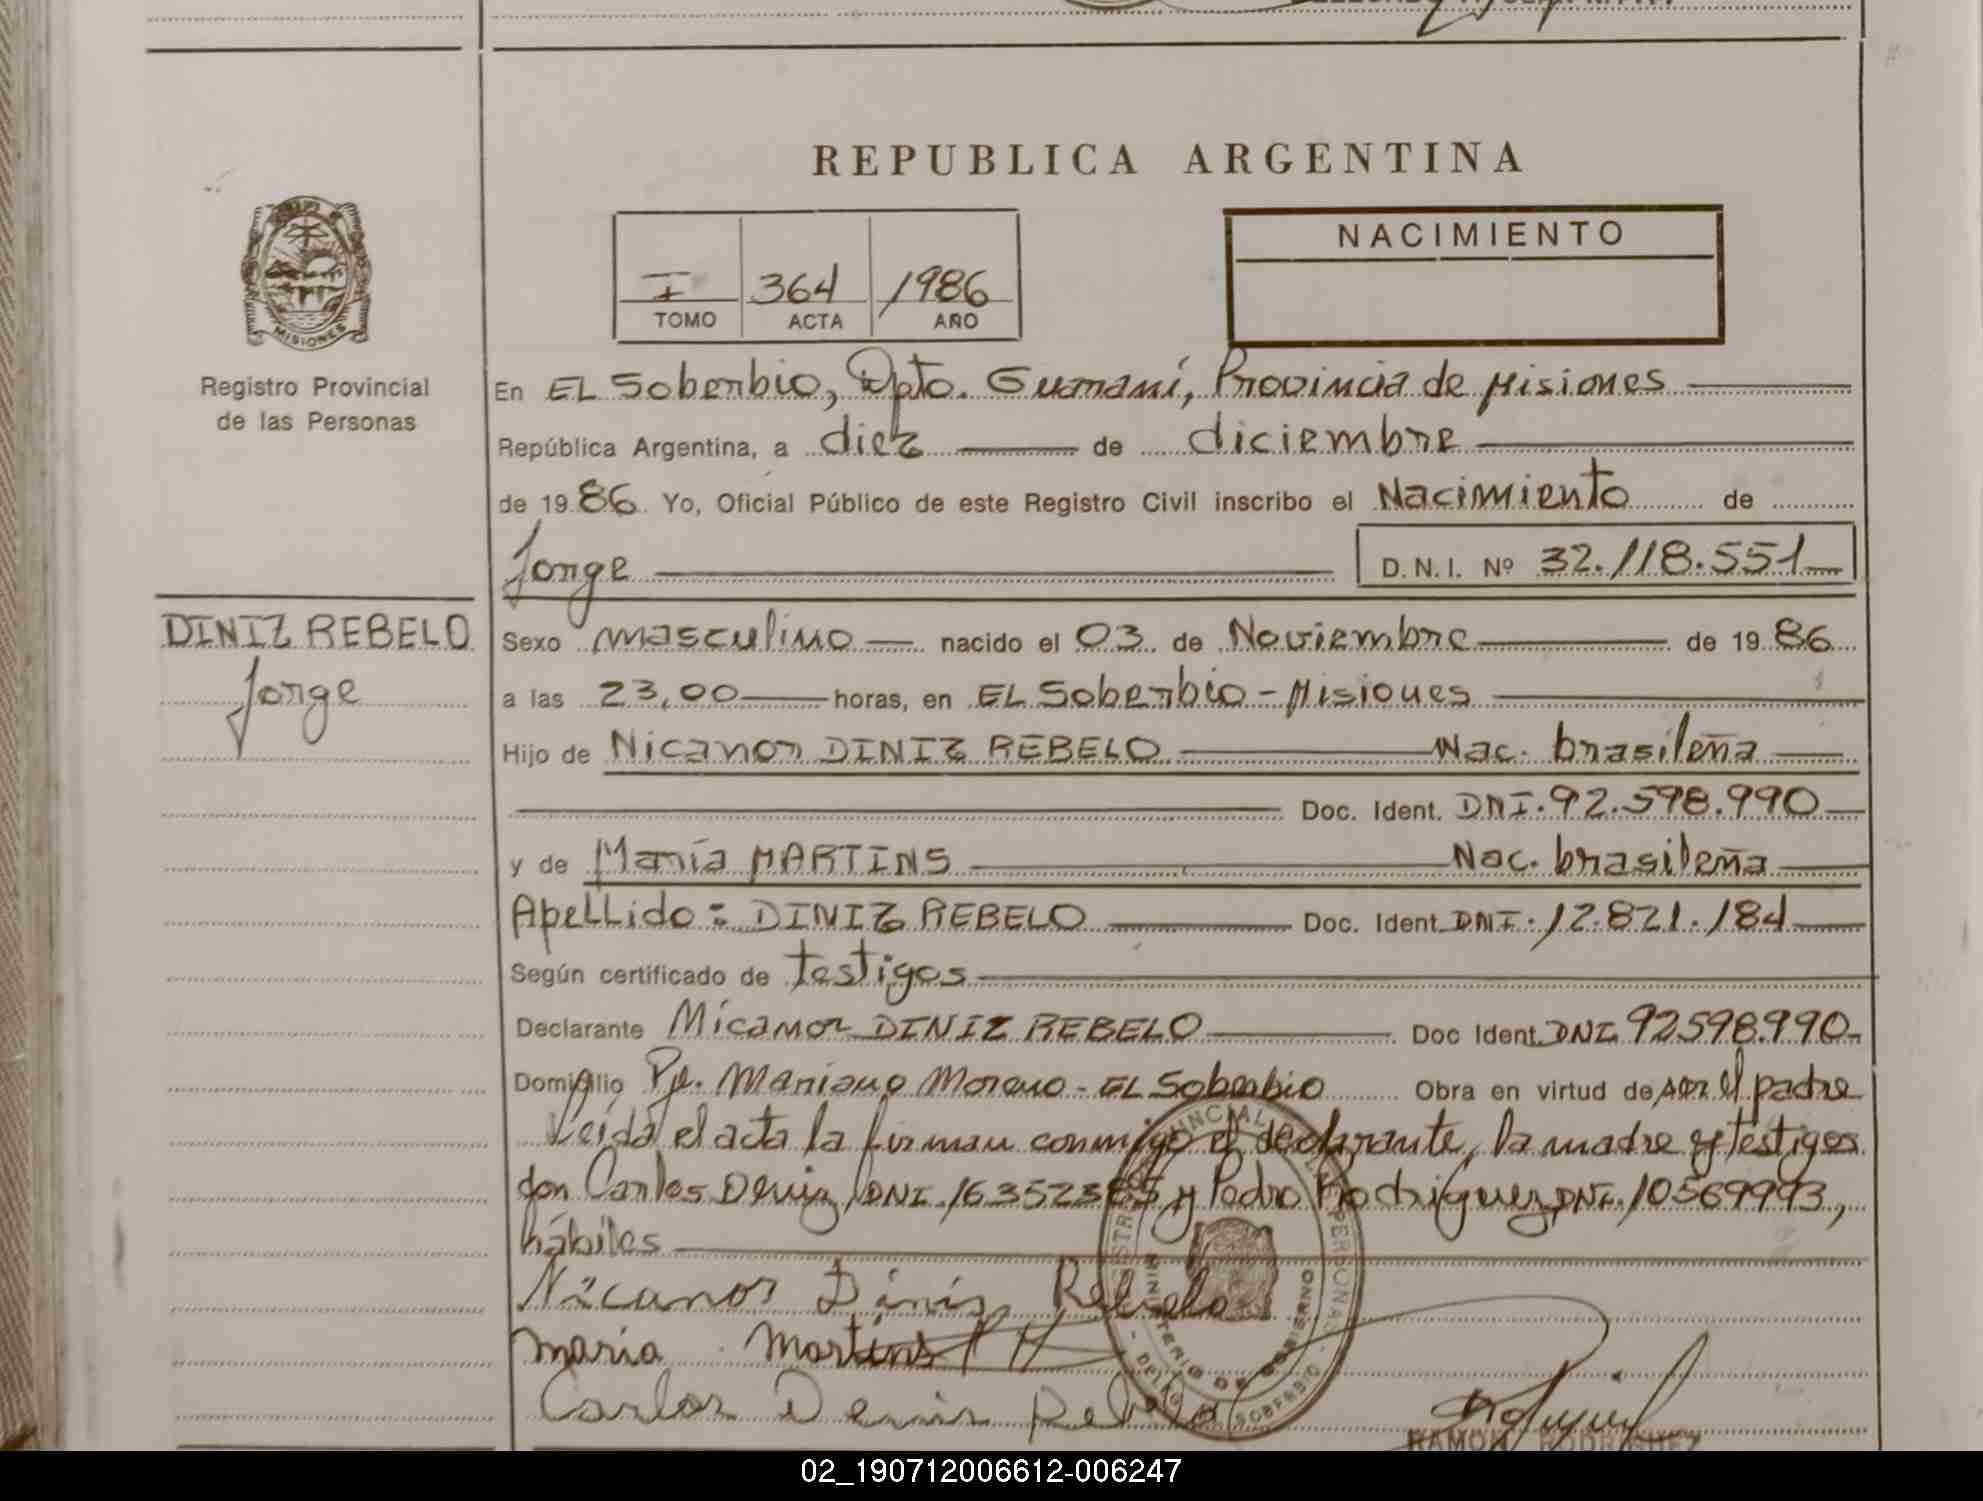 REPUBLICA ARGENTINA
NACIMIENTO
I 364 1986
TOMO ACTA AÑO
MISIONES
Registro Provincial
de las Personas
En EL Soberbio, Dpto. Guaraní, Provincia de Misiones
República Argentina, a diez de diciembre
de 1986 Yo, Oficial Público de este Registro Civil inscribo el Nacimiento de
Jorge D.N.I. Nº 32.118.551
DINIZ REBELO
Jorge
Sexo masculino nacido el 03 de Noviembre de 1986
a las 23,00 horas, en EL Soberbio - Misiones
Hijo de Nicanor DINIZ REBELO Nac. brasileña
Doc. Ident. DNI. 92.598.990
y de María MARTINS Nac. brasileña
Apellido: DINIZ REBELO Doc. Ident. DNI. 12.821.184
Según certificado de testigos
Declarante Nicanor DINIZ REBELO Doc Ident. DNI 92598.990
Domicilio Pje. Mariano Moreno - EL Soberbio Obra en virtud de ser el padre
Leída el acta la firman conmigo el declarante, la madre y testigos
don Carlos Deniz, DNI. 16352385 y Pedro Rodriguez, DNI. 10569993,
hábiles
Nicanor Diniz Rebelo
maria Martins
Carlos Deniz Rebelo
MINISTERIO DE GOBIERNO
RAMON RODRIGUEZ
02_190712006612-006247